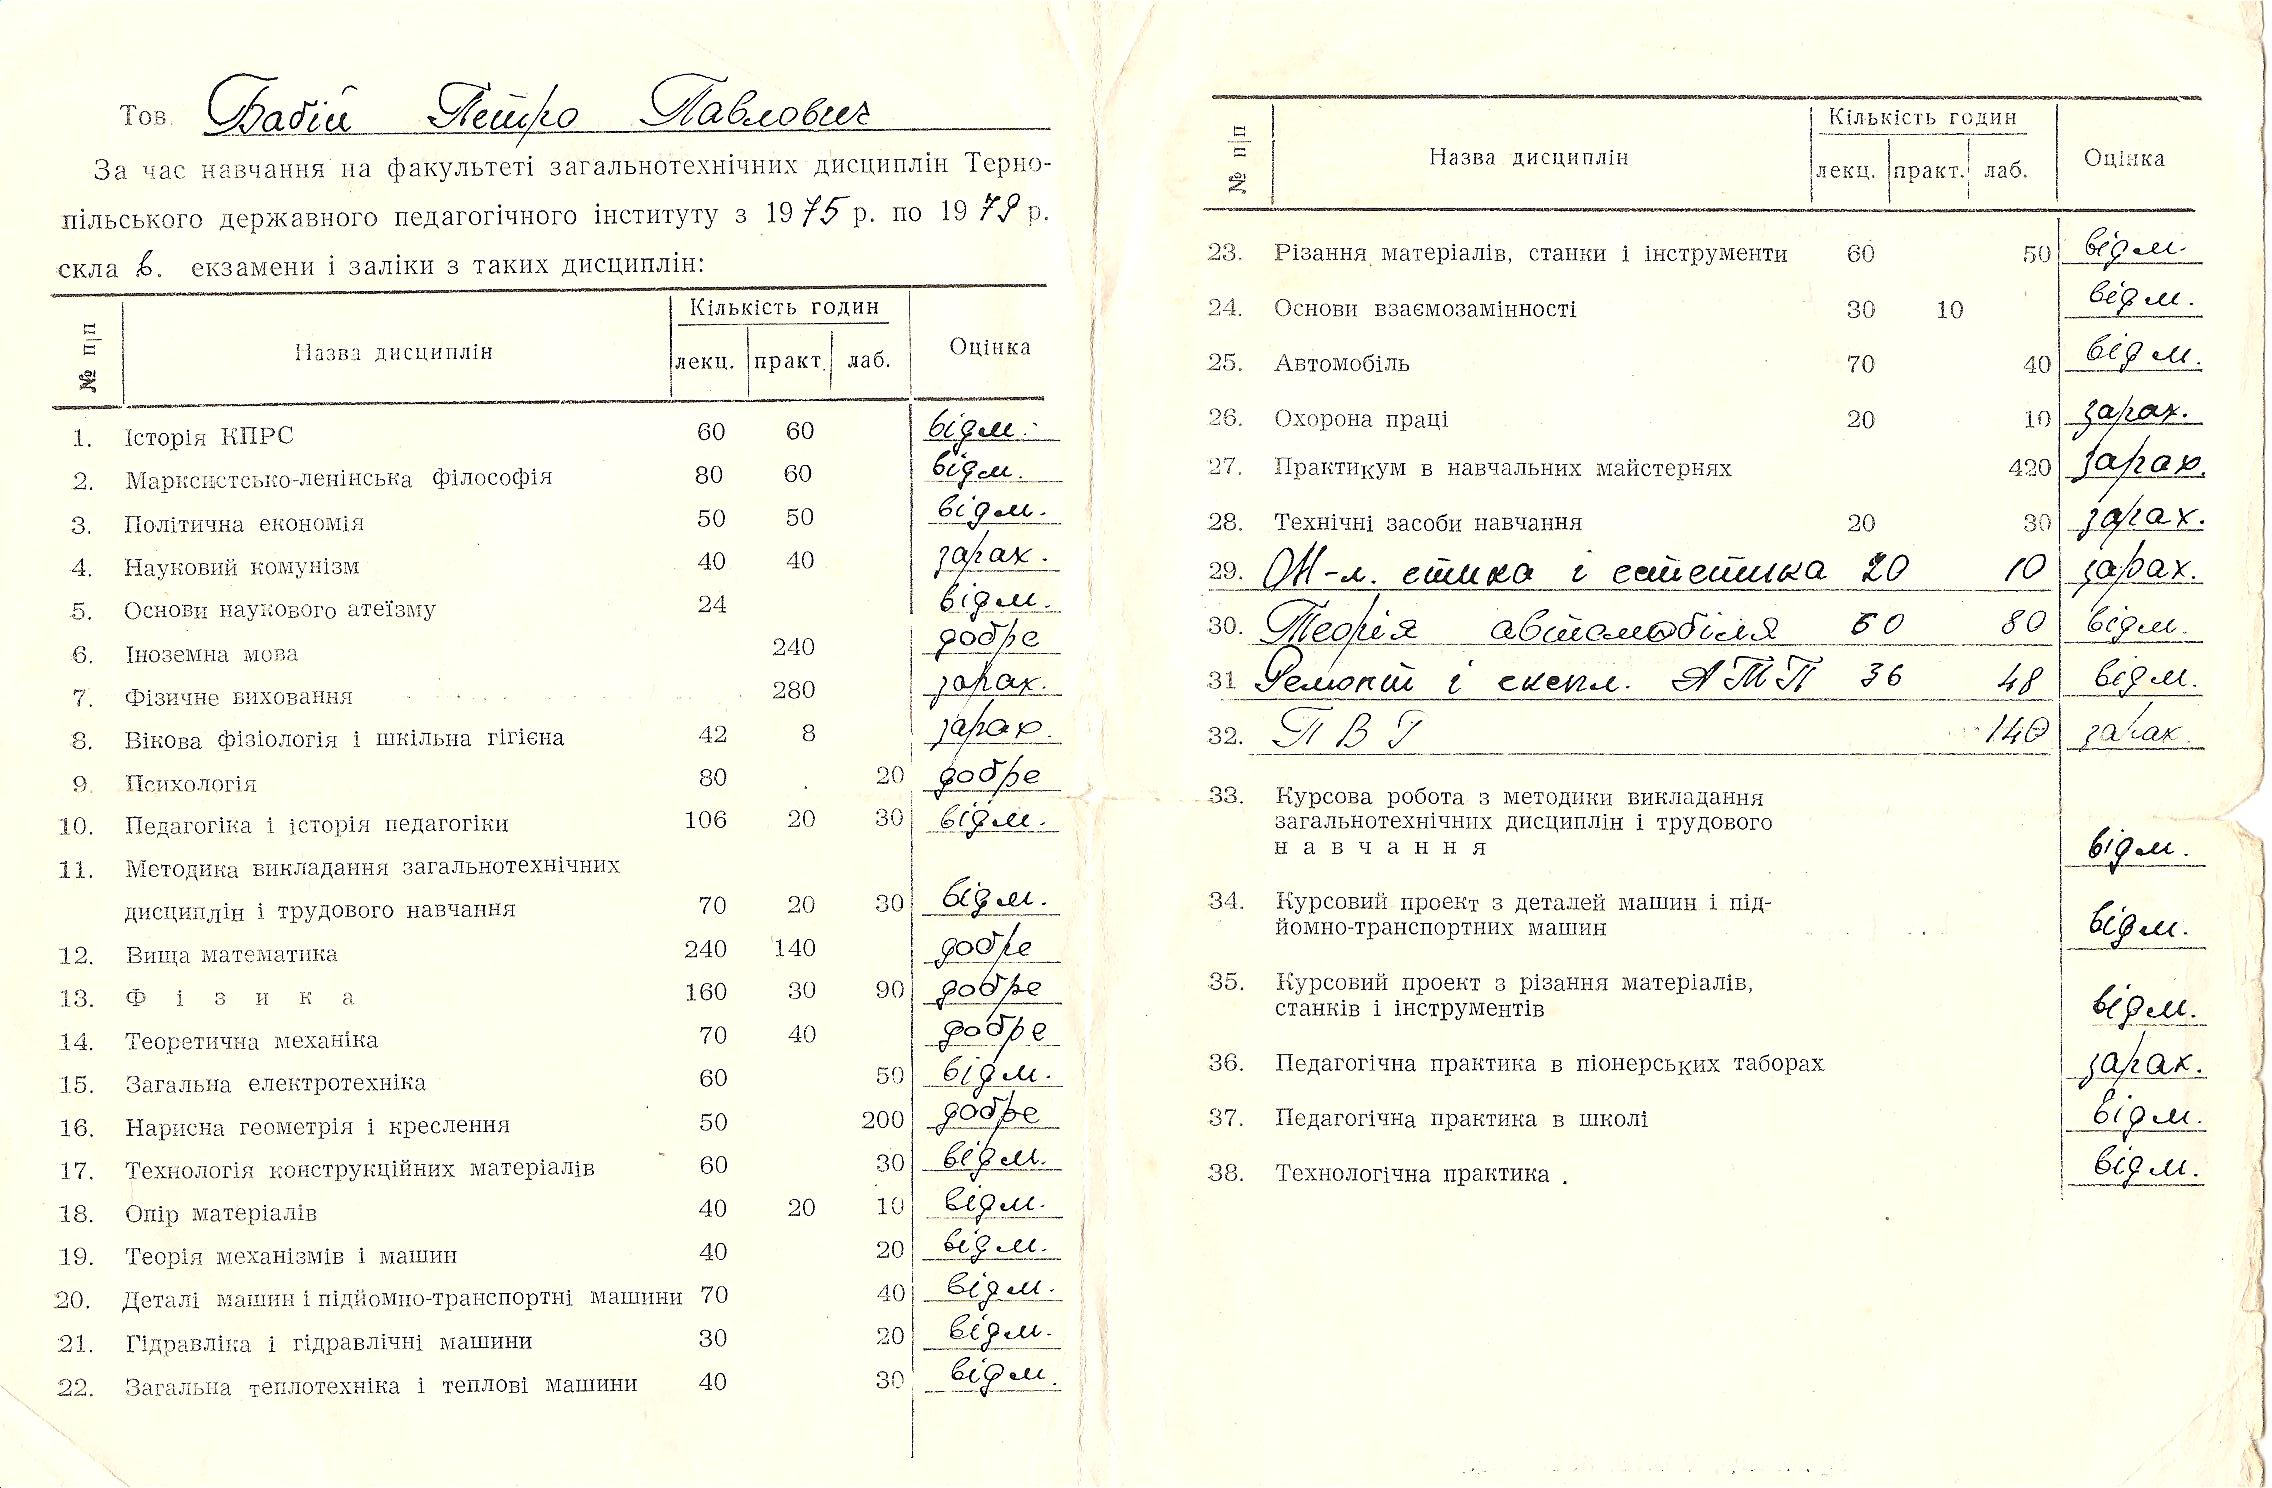 Тов. Бабій Петро Павлович
За час навчання на факультеті загальнотехнічних дисциплін Терно-
пільського державного педагогічного інституту з 1975 р. по 1979 р.
скла в. екзамени і заліки з таких дисциплін:
№ п|п Назва дисциплін Кількість годин Оцінка
лекц. практ. лаб.
1. Історія КПРС 60 60 відм.
2. Марксистсько-ленінська філософія 80 60 відм.
3. Політична економія 50 50 відм.
4. Науковий комунізм 40 40 зарах.
5. Основи наукового атеїзму 24 відм.
6. Іноземна мова 240 добре
7. Фізичне виховання 280 зарах.
8. Вікова фізіологія і шкільна гігієна 42 8 зарах.
9. Психологія 80 20 добре
10. Педагогіка і історія педагогіки 106 20 30 відм.
11. Методика викладання загальнотехнічних
дисциплін і трудового навчання 70 20 30 відм.
12. Вища математика 240 140 добре
13. Ф і з и к а 160 30 90 добре
14. Теоретична механіка 70 40 добре
15. Загальна електротехніка 60 50 відм.
16. Нарисна геометрія і креслення 50 200 добре
17. Технологія конструкційних матеріалів 60 30 відм.
18. Опір матеріалів 40 20 10 відм.
19. Теорія механізмів і машин 40 20 відм.
20. Деталі машин і підйомно-транспортні машини 70 40 відм.
21. Гідравліка і гідравлічні машини 30 20 відм.
22. Загальна теплотехніка і теплові машини 40 30 відм.
№ п|п Назва дисциплін Кількість годин Оцінка
лекц. практ. лаб.
23. Різання матеріалів, станки і інструменти 60 50 відм.
24. Основи взаємозамінності 30 10 відм.
25. Автомобіль 70 40 відм.
26. Охорона праці 20 10 зарах.
27. Практикум в навчальних майстернях 420 зарах.
28. Технічні засоби навчання 20 30 зарах.
29. М-л. етика і естетика 20 10 зарах.
30. Теорія автомобіля 60 80 відм.
31 Ремонт і експл. АТП 36 48 відм.
32. П В Г 140 зарах.
33. Курсова робота з методики викладання
загальнотехнічних дисциплін і трудового
н а в ч а н н я відм.
34. Курсовий проект з деталей машин і під-
йомно-транспортних машин відм.
35. Курсовий проект з різання матеріалів,
станків і інструментів відм.
36. Педагогічна практика в піонерських таборах зарах.
37. Педагогічна практика в школі відм.
38. Технологічна практика . відм.